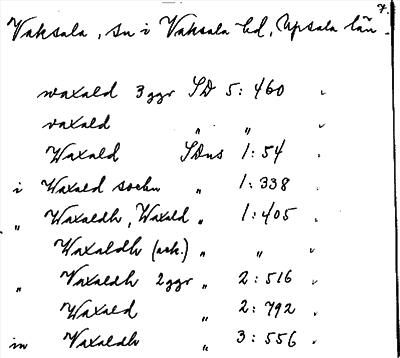 7.
Vaksala, sn i Vaksala hd, Upsala län.
waxald 3 ggr SD 5: 460 ✓
vaxald " " ✓
Waxald SDns 1: 54 ✓
i Waxald sochn " 1: 338 ✓
" Waxaldh, Waxald " 1: 405 ✓
Waxaldh (ack.) " " ✓
" Vaxaldh 2 ggr " 2: 516 ✓
Waxald " 2: 792 ✓
in Vaxaldh " 3: 556 ✓